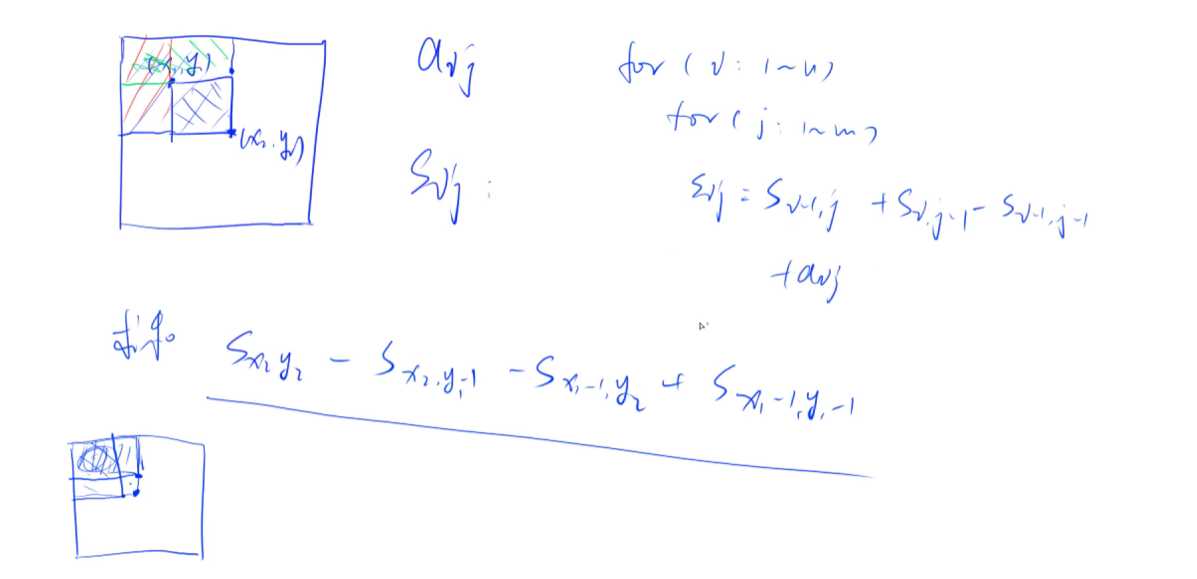 (x₁,y₁)
(x₂,y₂)
aᵢⱼ
Sᵢⱼ:
for (i: 1~n)
for (j: 1~m)
Sᵢⱼ = Sᵢ₋₁,ⱼ + Sᵢ,ⱼ₋₁ - Sᵢ₋₁,ⱼ₋₁
+ aᵢⱼ
S_{x₂y₂} - S_{x₂,y₁-1} - S_{x₁-1,y₂} + S_{x₁-1,y₁-1}